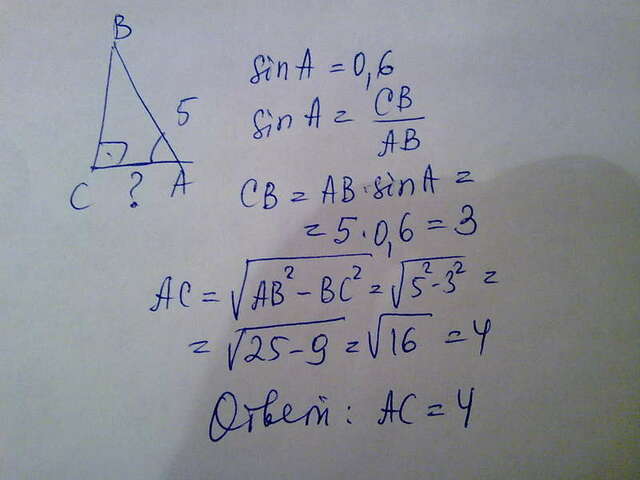 B
5
C ? A
sin A = 0,6
sin A = CB/AB
CB = AB · sin A =
= 5 · 0,6 = 3
AC = √(AB² - BC²) = √(5² - 3²) =
= √(25 - 9) = √16 = 4
Ответ: AC = 4